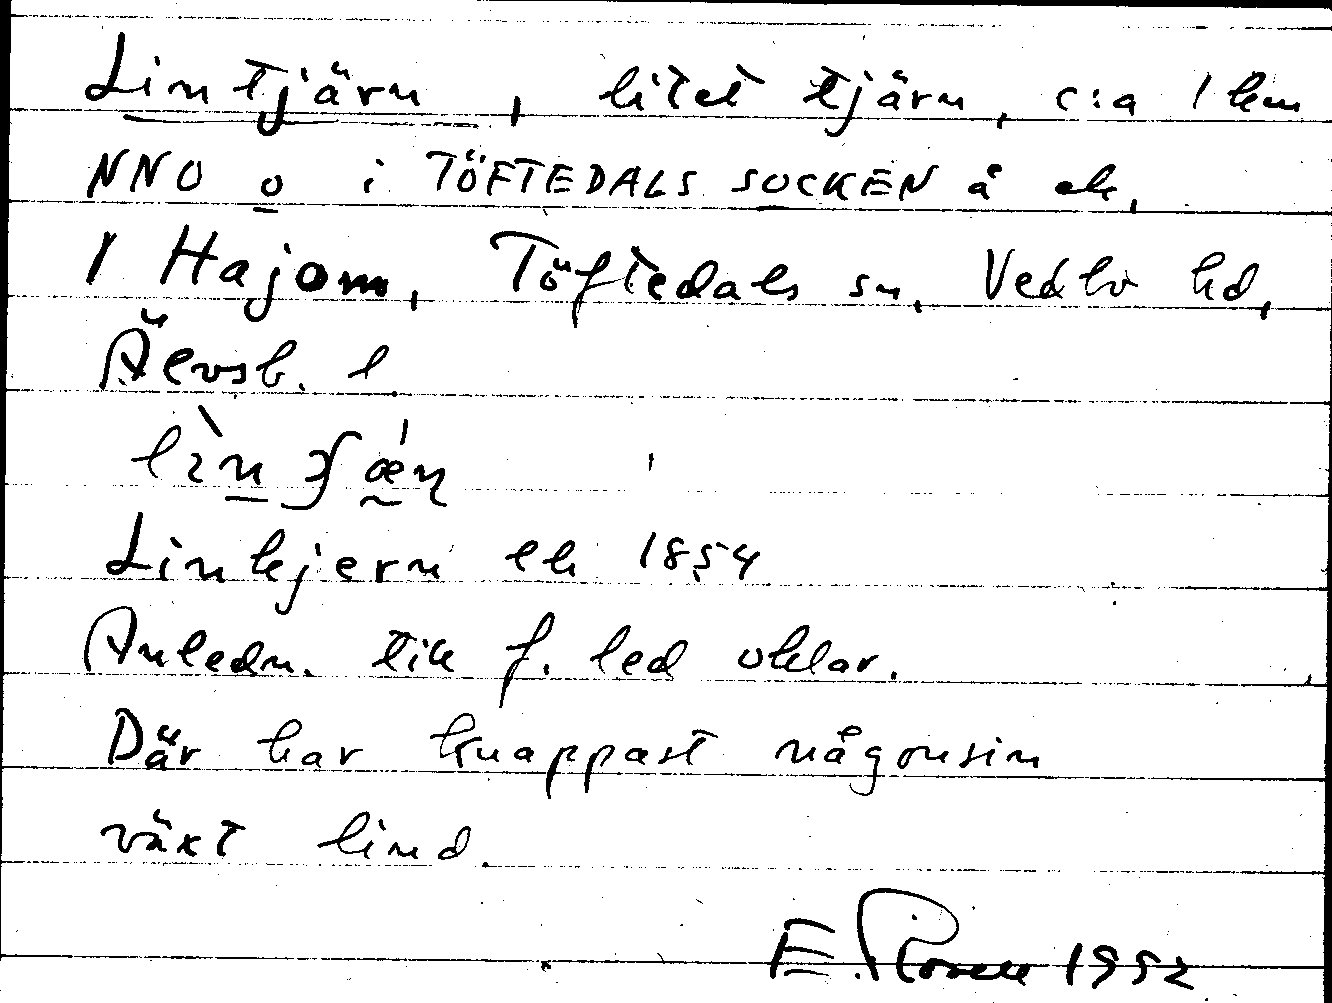 Lintjärn, litet tjärn, c:a 1 km
NNO o i TÖFTEDALS SOCKEN å ek,
1 Hajom, Töftedals sn, Vedbo hd,
Älvsb. l.
Linkjern ek 1854
Anledn. till f. led oklar.
Där har knappast någonsin
växt lind.
E. Rosell 1952